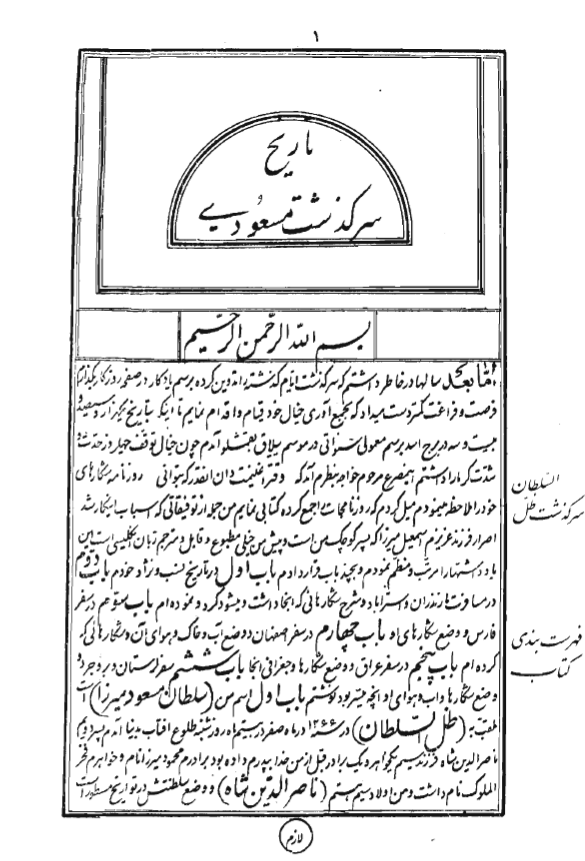 ١
تاریخ
سرگذشت مسعودی
بسم الله الرحمن الرحیم
امّا بعد سالها در خاطر داشتم که سرگذشت ایام گذشته را تدوین کرده برسم یادگار در صفحه روزگار بگذارم
فرصت و فراغت کمتر دست میداد که بجمع آوری خیال خود قیام و اقدام نمایم تا اینکه بتاریخ یکهزار و سیصد و
بیست و سه در برج اسد برسم معمول سنواتی در موسم ییلاق بقمشلو آدم چون خیال توقف چهار روز
شدت گرما را داشتم این مصرع مرحوم خواجه بنظرم آمد که وقت را غنیمت دان آنقدر که بتوانی روزنامه شکارهای
خود را ملاحظه مینمودم میل کردم که روزنامجات را جمع کرده کتابی نمایم من جمله از توفیقاتی که سبب اینکار شد
اصرار فرزند عزیزم اسمعیل میرزا که پسر کوچک من است و پیش من خیلی مطبوع و قابل و مترجم زبان انگلیسی است این
یادداشتها را مرتب و منظم نمودم و بچند باب قرار دادم باب اول در تاریخ نسب و نژاد خودم باب دوم
در مسافرت مازندران و استراباد و شرح شکارهائی که انجا داشت و میشود کرد و نموده ام باب سوم در سفر
فارس و وضع شکارهای او باب چهارم در سفر اصفهان و وضع آب و خاک و هوای آن و شکارهائی که
کرده ام باب پنجم در سفر عراق و وضع شکارها و جغرافی انجا باب ششم سفر لرستان و بروجرد و
وضع شکارها و اب و هوای او انچه میسر بود نوشتم باب اول اسم من (سلطان مسعود میرزا) است
ملقب به (ظل السلطان) در سنه ١٢٦٦ در ماه صفر در بیستم ماه روز شنبه طلوع افتاب بدنیا آدم پسر دویم
ناصرالدین شاه فرزند سیم یکخواهر و یک برادر قبل از من خدا بپدرم داده بود برادرم محمود میرزا نام و خواهرم فخر
الملوک نام داشت و من اولاد سیم هستم (ناصر الدین شاه) و وضع سلطنتش در تواریخ مسطور است
لازم
السلطان
سرگذشت ظل
فهرست بندی
کتاب